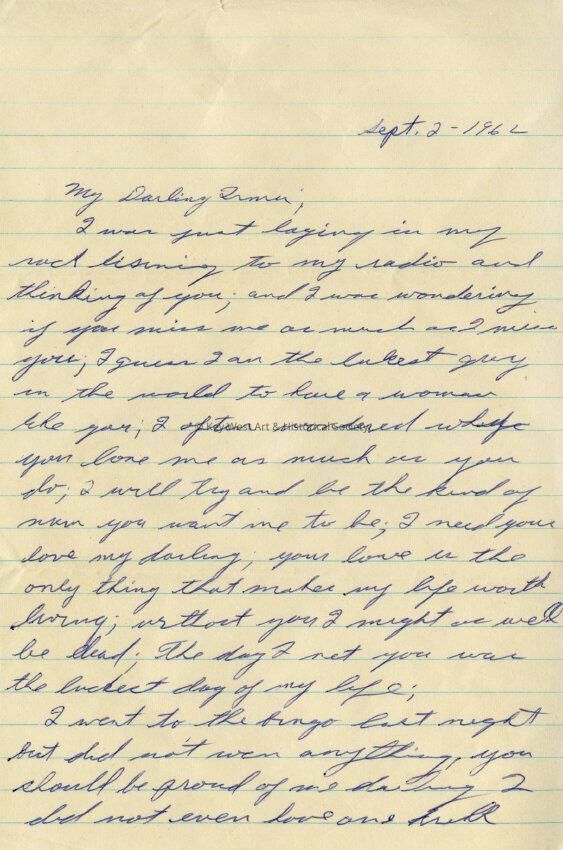 Sept. 2 - 1962
My Darling Irma;
I was just laying in my
rack lisning to my radio and
thinking of you; and I was wondering
if you miss me as much as I miss
you; I guess I am the lukest guy
in the world to have a woman
like you; I often wondered why
© Key West Art & Historical Society
you love me as much as you
do; I will try and be the kind of
man you want me to be; I need your
love my darling; your love is the
only thing that makes my life worth
living; without you I might as well
be dead; The day I met you was
the luckest day of my life;
I went to the bingo last night
but did not win anything, you
should be proud of me darling I
did not even
one